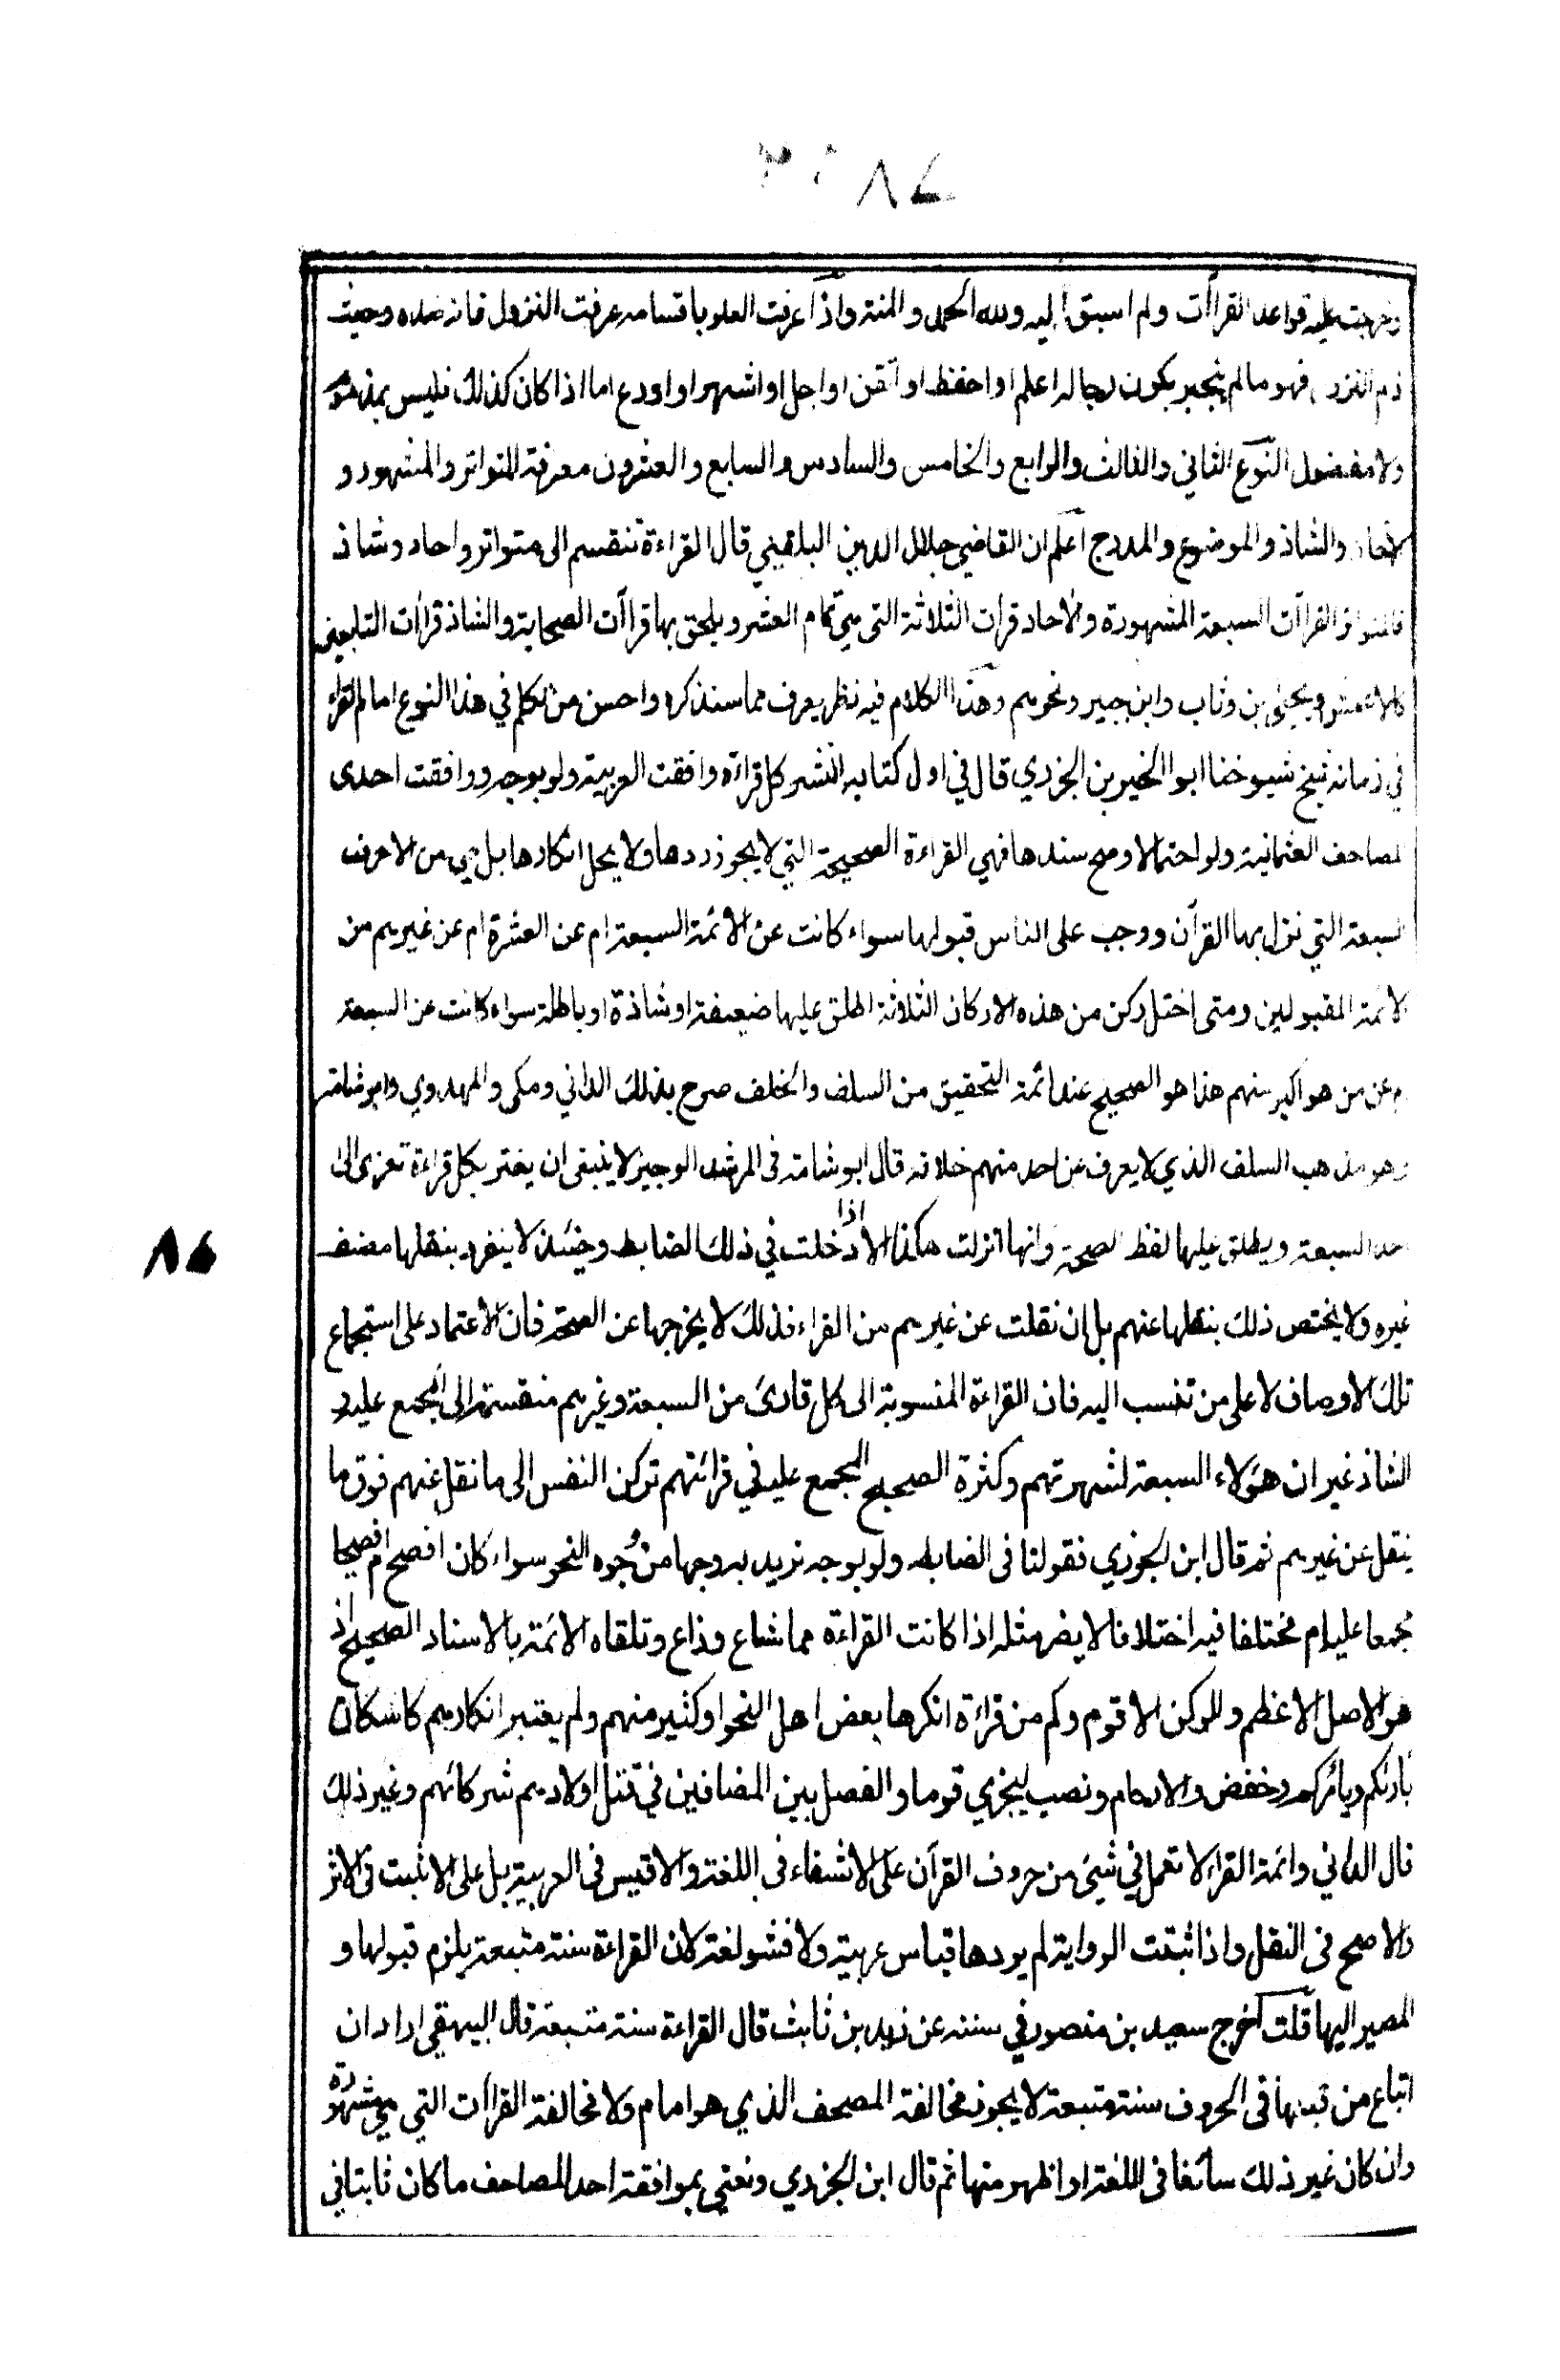 ٨٤
وخرجت عليه قواعد القراآت ولم اسبق اليه ولله الحمد والمنة واذا عرفت العلو باقسامه عرفت النزول فانه ضده وحيث
ذم النزول فهو ما لم ينجبر بكون رجاله اعلم او احفظ او اتقن او اجل او اشهر او اورع اما اذا كان كذلك فليس بمذموم
ولا مفضول النوع الثاني والثالث والرابع والخامس والسادس والسابع والعشرون معرفة المتواتر والمشهور و
الاحاد والشاذ والموضوع والمدرج اعلم ان القاضي جلال الدين البلقيني قال القراءة تنقسم الى متواتر واحاد وشاذ
فالمتواتر القراآت السبعة المشهورة والاحاد قرات الثلاثة التي هي تمام العشر ويلحق بها قراآت الصحابة والشاذ قراات التابعين
كالاعمش ويحيى بن وثاب وابن جبير ونحوهم وهذا الكلام فيه نظر يعرف مما سنذكره واحسن من تكلم في هذا النوع امام القراء
في زمانه شيخ شيوخنا ابو الخير بن الجزري قال في اول كتابه النشر كل قراءة وافقت العربية ولو بوجه ووافقت احدى
المصاحف العثمانية ولو احتمالا وصح سندها فهي القراءة الصحيحة التي لا يجوز ردها ولا يحل انكارها بل هي من الاحرف
السبعة التي نزل بها القرآن ووجب على الناس قبولها سواء كانت عن الائمة السبعة ام عن العشرة ام عن غيرهم من
الائمة المقبولين ومتى اختل ركن من هذه الاركان الثلاثة اطلق عليها ضعيفة او شاذة او باطلة سواء كانت عن السبعة
ام عن من هو اكبر منهم هذا هو الصحيح عند ائمة التحقيق من السلف والخلف صرح بذلك الداني ومكى والمهدوي وابو شامة
وهو مذهب السلف الذي لا يعرف عن احد منهم خلافه قال ابو شامة فى المرشد الوجيز لا ينبغى ان يغتر بكل قراءة تعزى الى
احد السبعة ويطلق عليها لفظ الصحة وانها انزلت هكذا الا اذا دخلت في ذلك الضابط وحينئذ لا ينفرد بنقلها مصنف
٨٤
غيره ولا يختص ذلك بنقلها عنهم بل ان نقلت عن غيرهم من القراء فذلك لا يخرجها عن الصحة فان الاعتماد على استجماع
تلك الاوصاف لا على من تنسب اليه فان القراءة المنسوبة الى كل قارئ من السبعة وغيرهم منقسمة الى المجمع عليه و
الشاذ غير ان هؤلاء السبعة لشهرتهم وكثرة الصحيح المجمع عليه في قرائتهم تركن النفس الى ما نقل عنهم فوق ما
ينقل عن غيرهم ثم قال ابن الجوزي فقولنا فى الضابط ولو بوجه نريد به وجها من وجوه النحو سواء كان افصح ام فصيحا
مجمعا عليه ام مختلفا فيه اختلافا لا يضر مثله اذا كانت القراءة مما شاع وذاع وتلقاه الائمة بالاسناد الصحيح اذ
هو الاصل الاعظم والركن الاقوم وكم من قراءة انكرها بعض اهل النحو او كثير منهم ولم يعتبر انكارهم كاسكان
بارئكم ويأمركم وخفض والارحام ونصب ليجزي قوما والفصل بين المضافين في قتل اولادهم شركائهم وغير ذلك
قال الداني وائمة القراء لا تعمل في شيئ من حروف القرآن على الافشاء فى اللغة والاقيس فى العربية بل على الاثبت فى الاثر
والاصح فى النقل واذا ثبتت الرواية لم يردها قياس عربية ولا فشو لغة لان القراءة سنة متبعة يلزم قبولها و
المصير اليها قلت اخرج سعيد بن منصور في سننه عن زيد بن ثابت قال القراءة سنة متبعة قال البيهقي اراد ان
اتباع من قبلها فى الحروف سنة متبعة لا يجوز مخالفة المصحف الذي هو امام ولا مخالفة القراات التي هي مشهورة
وان كان غير ذلك سائغا فى اللغة او اظهر منها ثم قال ابن الجزري ونعني بموافقة احد المصاحف ما كان ثابتا في